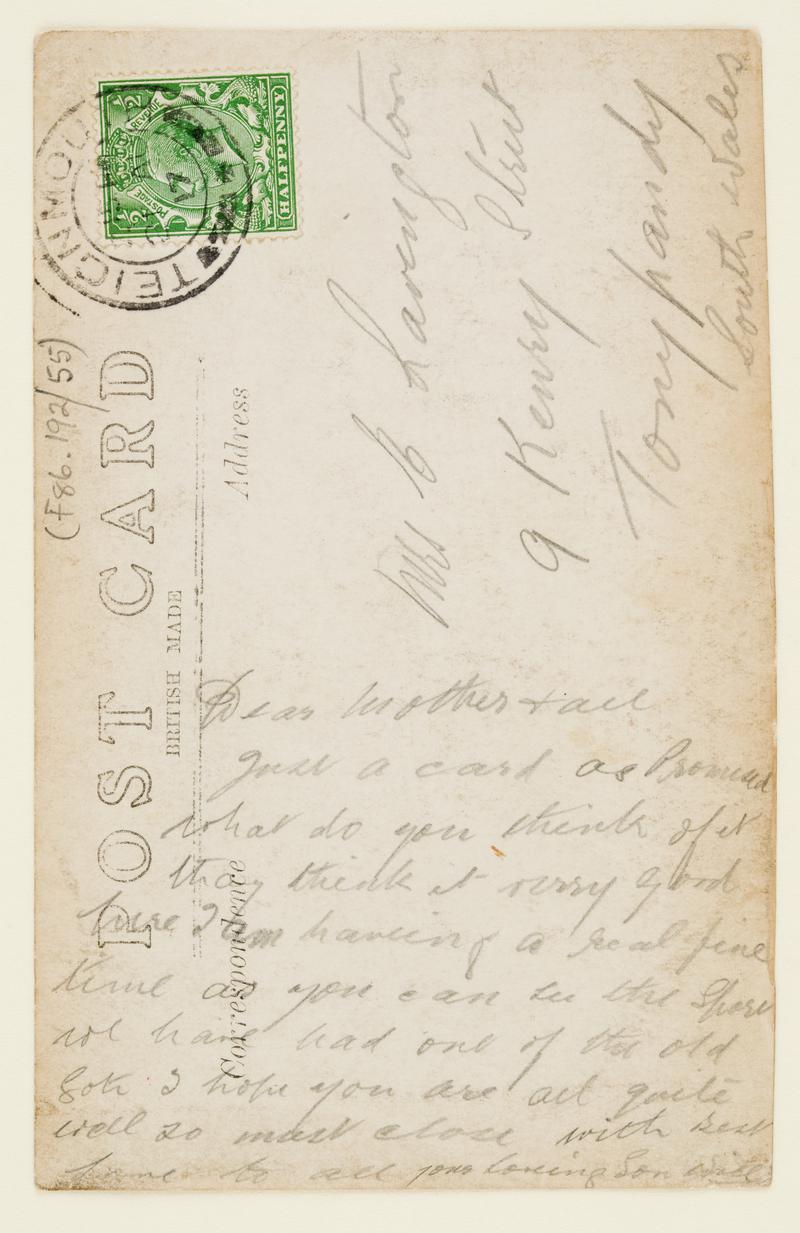 POST CARD
BRITISH MADE
Correspondence
Address
(F86.192/55)
TEIGNMOU
17
POSTAGE
REVENUE
½
½
HALFPENNY
Mrs C Lavington
9 Kenry Street
Tonypandy
South Wales
Dear Mother + all
Just a card as Promised
what do you think of it
thay think it verry good
here I am haveing a real fine
time as you can see the
we have had one of the old
I hope you are all quite
well so must close with best
to all your loving Son